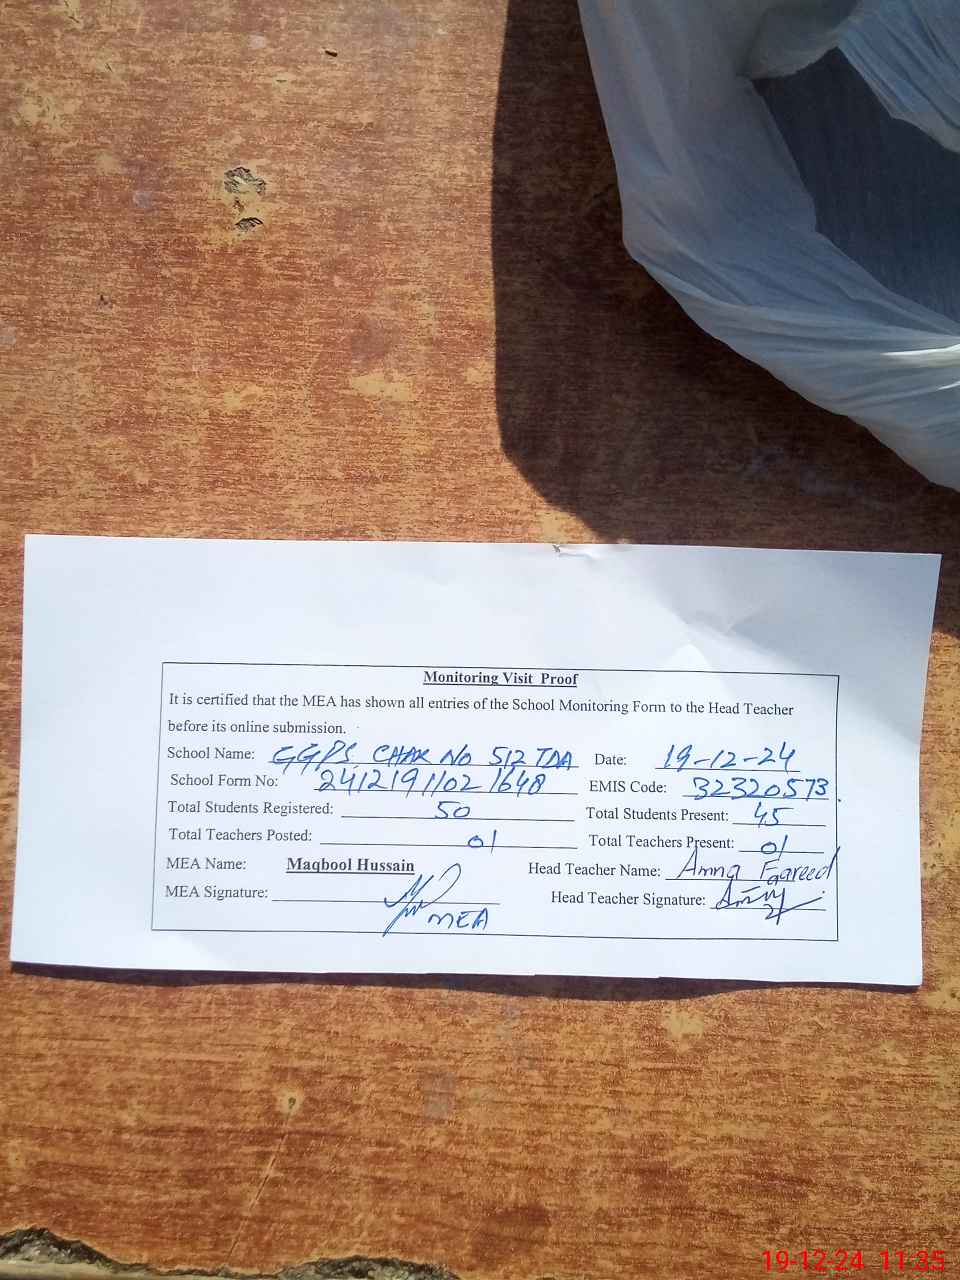 Monitoring Visit Proof
It is certified that the MEA has shown all entries of the School Monitoring Form to the Head Teacher
before its online submission.
School Name: GGPS CHAK No 512 TDA Date: 19-12-24
School Form No: 2412191102 1648 EMIS Code: 32320573
Total Students Registered: 50 Total Students Present: 45
Total Teachers Posted: 01 Total Teachers Present: 01
MEA Name: Maqbool Hussain Head Teacher Name: Amna Fareed
MEA Signature: MEA Head Teacher Signature:
19-12-24 11:35